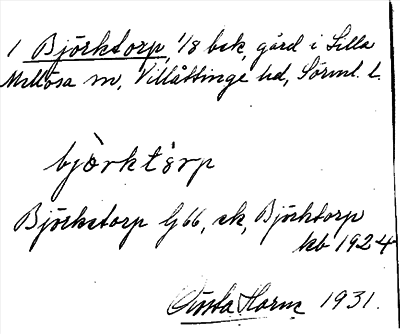 1 Björktorp, 1/8 bsk, gård i Lilla
Mellösa sn, Villåttinge hd, Sörml. l.
bjò̀rktörp
Björkstorp G66, ek, Björktorp
kb 1924
Gösta Harm 1931.